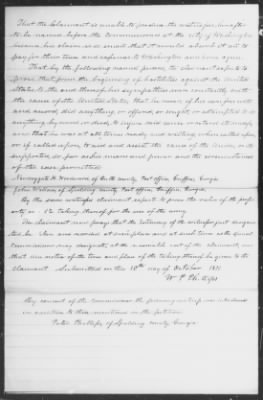 That the Claimant is unable to produce the witnesses hereafter
to be named before the Commissioners at the city of Washington
because his claim is so small that it would absorb it all to
pay for their time and expenses to Washington and home again.
That by the following named persons, to wit he expects to
prove that from the beginning of hostilities against the United
States to the end thereof his sympathies were constantly with
the cause of the United States; that he never of his own free will
and accord did anything, or offered, or sought, or attempted to do
anything by word or deed, to injure said cause or retard its success
and that he was at all times ready and willing, when called upon,
or if called upon, to aid and assist the cause of the Union, or its
supporters, so far as his means and power and the circumstances
of the case permitted.
of county, Post office, Griffin, Georgia
John of Spalding county, Post office, Griffin, Georgia
By the same witnesses claimant expects to prove the value of the property
&c. taking thereof for the use of the army.
The claimant now prays that the testimony of the witnesses just
be and at such place and at such time as the
Commissioners may designate, at the reasonable cost of the claimant, and
that due notice of the time and place of the taking thereof be given to the
Claimant. Submitted on this 10th day of October 1871
W. P. Phillips
By consent of the commissioners the following witness was introduced
in addition to those mentioned in the petition
Peter Phillips of Spalding County Georgia